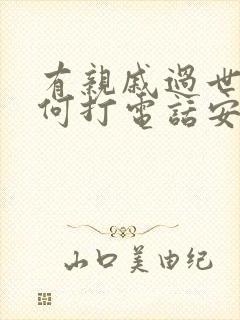 有親戚過世
何打電話安
山口美由纪